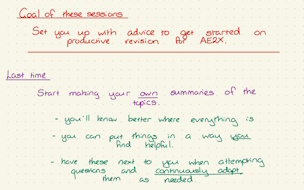 Goal of these sessions
Set you up with advice to get started on
productive revision for AE2X.
Last time
Start making your own summaries of the
topics.
- you'll know better where everything is
- you can put things in a way you
find helpful.
- have these next to you when attempting
questions and continuously adapt
them as needed